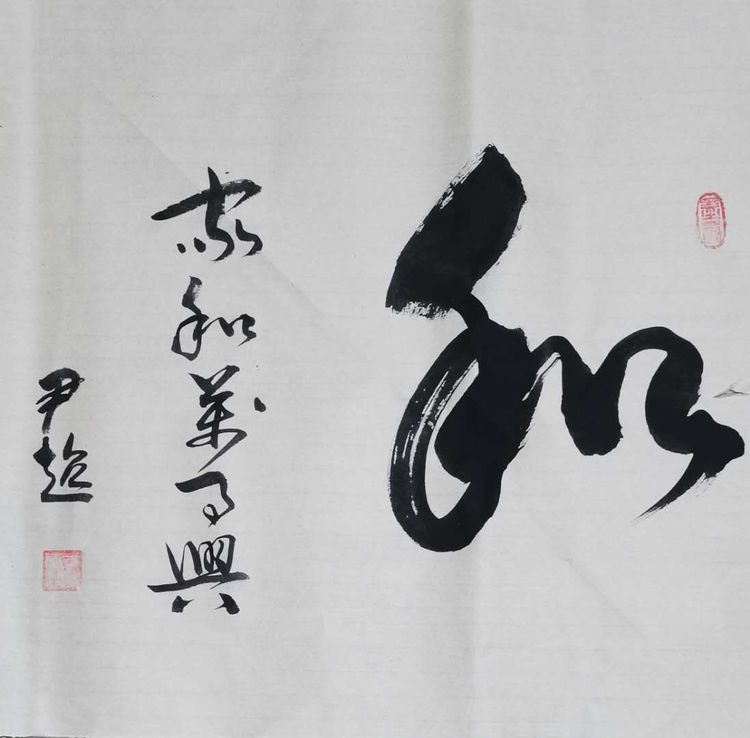 和
家和萬事興
尹超